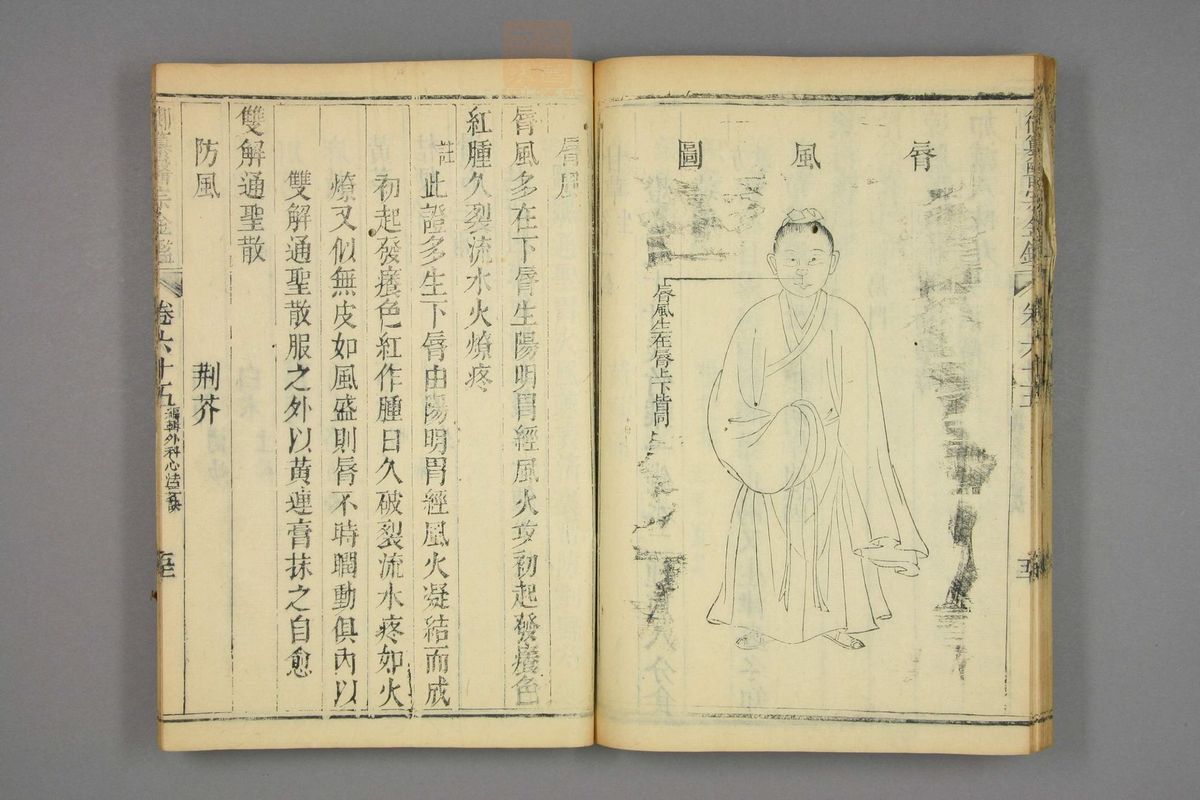 脣風圖
脣風生在脣上下皆同
脣風
脣風多在下脣生陽明胃經風火攻初起發癢色
紅腫久裂流水火燎疼
註此證多生下脣由陽明胃經風火凝結而成
初起發癢色紅作腫日久破裂流水疼如火
燎又似無皮如風盛則脣不時瞤動俱內以
雙解通聖散服之外以黃連膏抹之自愈
雙解通聖散
防風 荆芥
御纂醫宗金鑑 卷六十五 編輯外科心法要訣